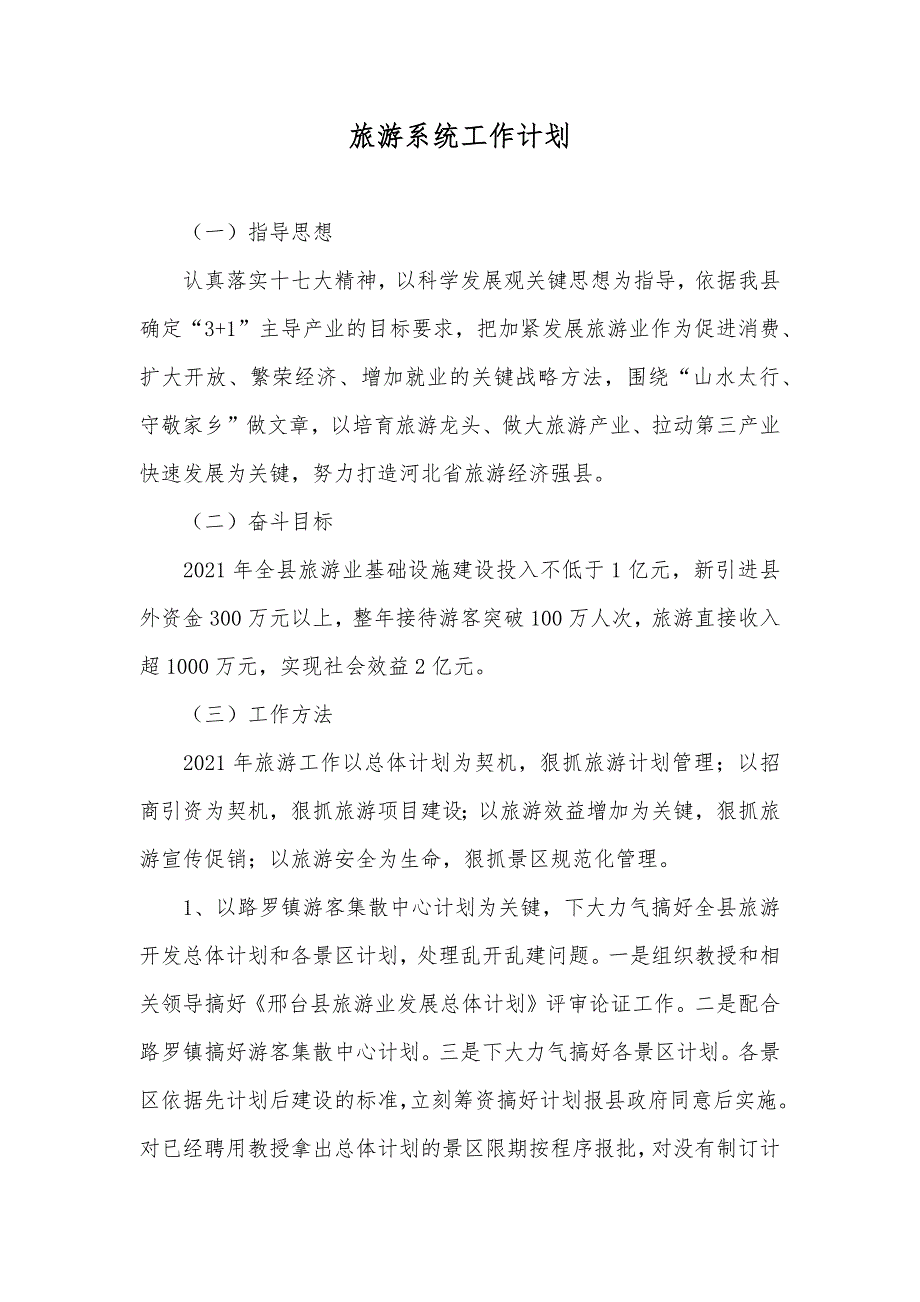 旅游系统工作计划
（一）指导思想
认真落实十七大精神，以科学发展观关键思想为指导，依据我县
确定“3+1”主导产业的目标要求，把加紧发展旅游业作为促进消费、
扩大开放、繁荣经济、增加就业的关键战略方法，围绕“山水太行、
守敬家乡”做文章，以培育旅游龙头、做大旅游产业、拉动第三产业
快速发展为关键，努力打造河北省旅游经济强县。
（二）奋斗目标
2021 年全县旅游业基础设施建设投入不低于 1 亿元，新引进县
外资金 300 万元以上，整年接待游客突破 100 万人次，旅游直接收入
超 1000 万元，实现社会效益 2 亿元。
（三）工作方法
2021 年旅游工作以总体计划为契机，狠抓旅游计划管理；以招
商引资为契机，狠抓旅游项目建设；以旅游效益增加为关键，狠抓旅
游宣传促销；以旅游安全为生命，狠抓景区规范化管理。
1、以路罗镇游客集散中心计划为关键，下大力气搞好全县旅游
开发总体计划和各景区计划，处理乱开乱建问题。一是组织教授和相
关领导搞好《邢台县旅游业发展总体计划》评审论证工作。二是配合
路罗镇搞好游客集散中心计划。三是下大力气搞好各景区计划。各景
区依据先计划后建设的标准，立刻筹资搞好计划报县政府同意后实施。
对已经聘用教授拿出总体计划的景区限期按程序报批，对没有制订计